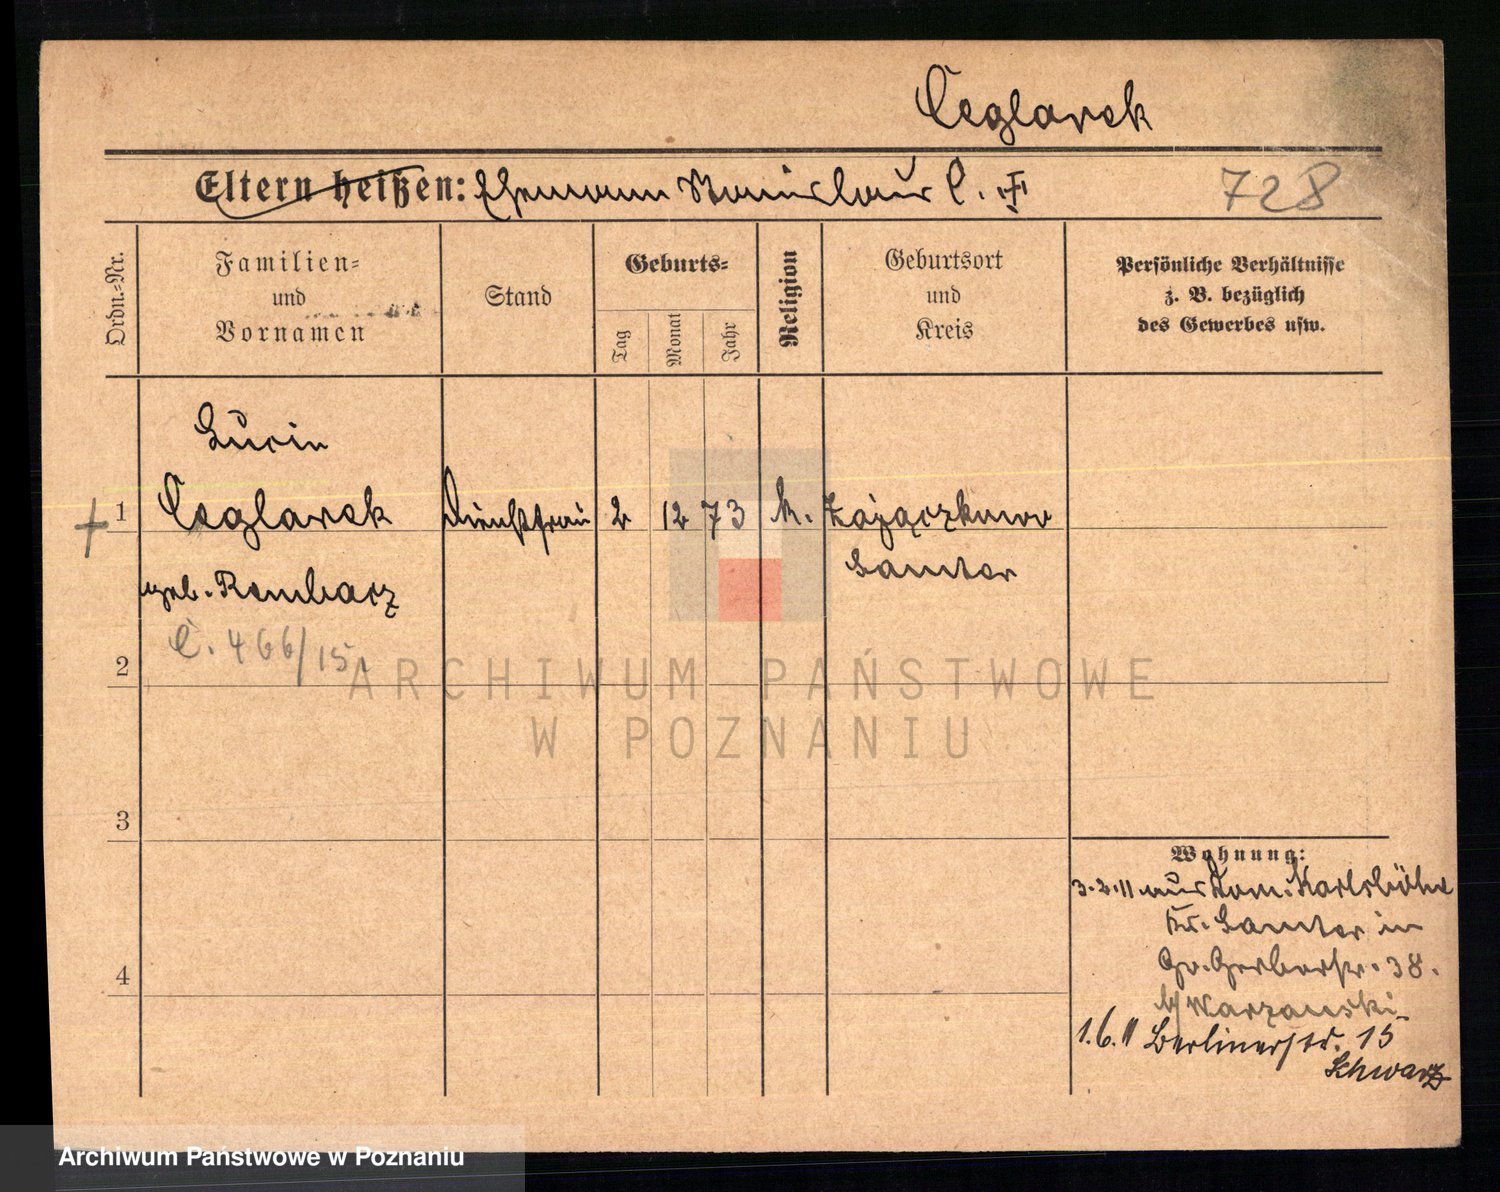 Ceglarek
Eltern heißen: Ehemann Stanislaus C. †
728
Ordn.-Nr.
Familien-
und
Vornamen
Stand
Geburts-
Tag
Monat
Jahr
Religion
Geburtsort
und
Kreis
Persönliche Verhältnisse
z. B. bezüglich
des Gewerbes usw.
Lucie
1 Ceglarek Dienstfrau 2 12 73 k. Zajączkowo
Samter
geb. Rembacz
C. 466/15.
2
3
4
Wohnung:
3.2.11 aus Dom. Karlshöhe
Kr. Samter in
Gr. Gerberstr. 38.
b/ Warzanski
1.6.11 Berlinerstr. 15
Schwarz
ARCHIWUM PAŃSTWOWE
W POZNANIU
Archiwum Państwowe w Poznaniu